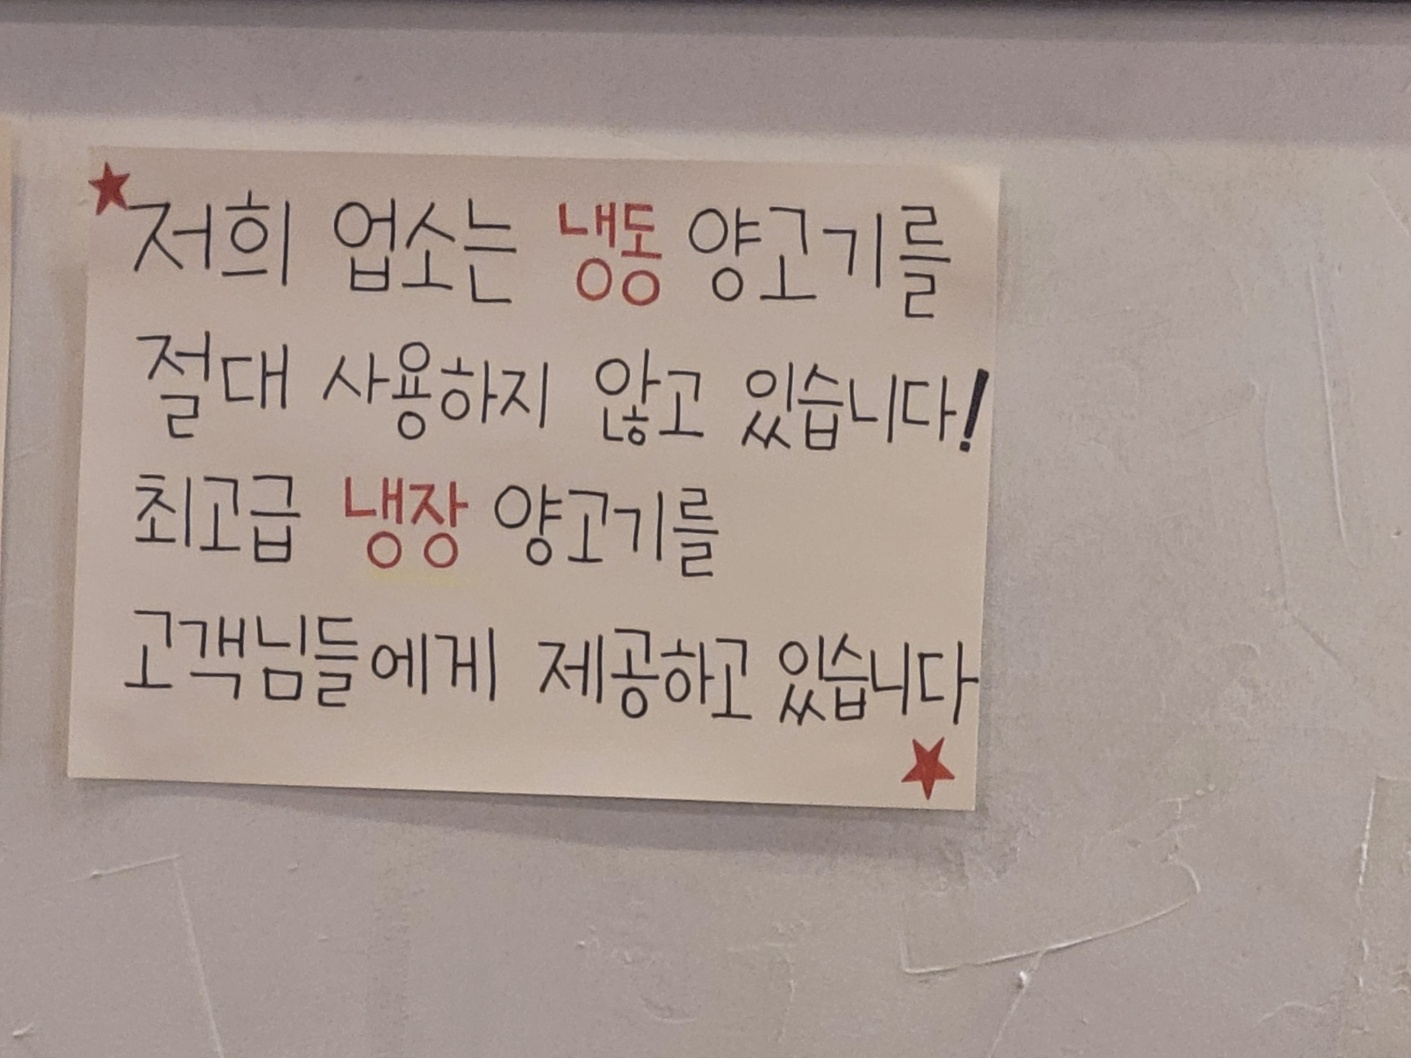 ★저희 업소는 냉동 양고기를
절대 사용하지 않고 있습니다!
최고급 냉장 양고기를
고객님들에게 제공하고 있습니다
★